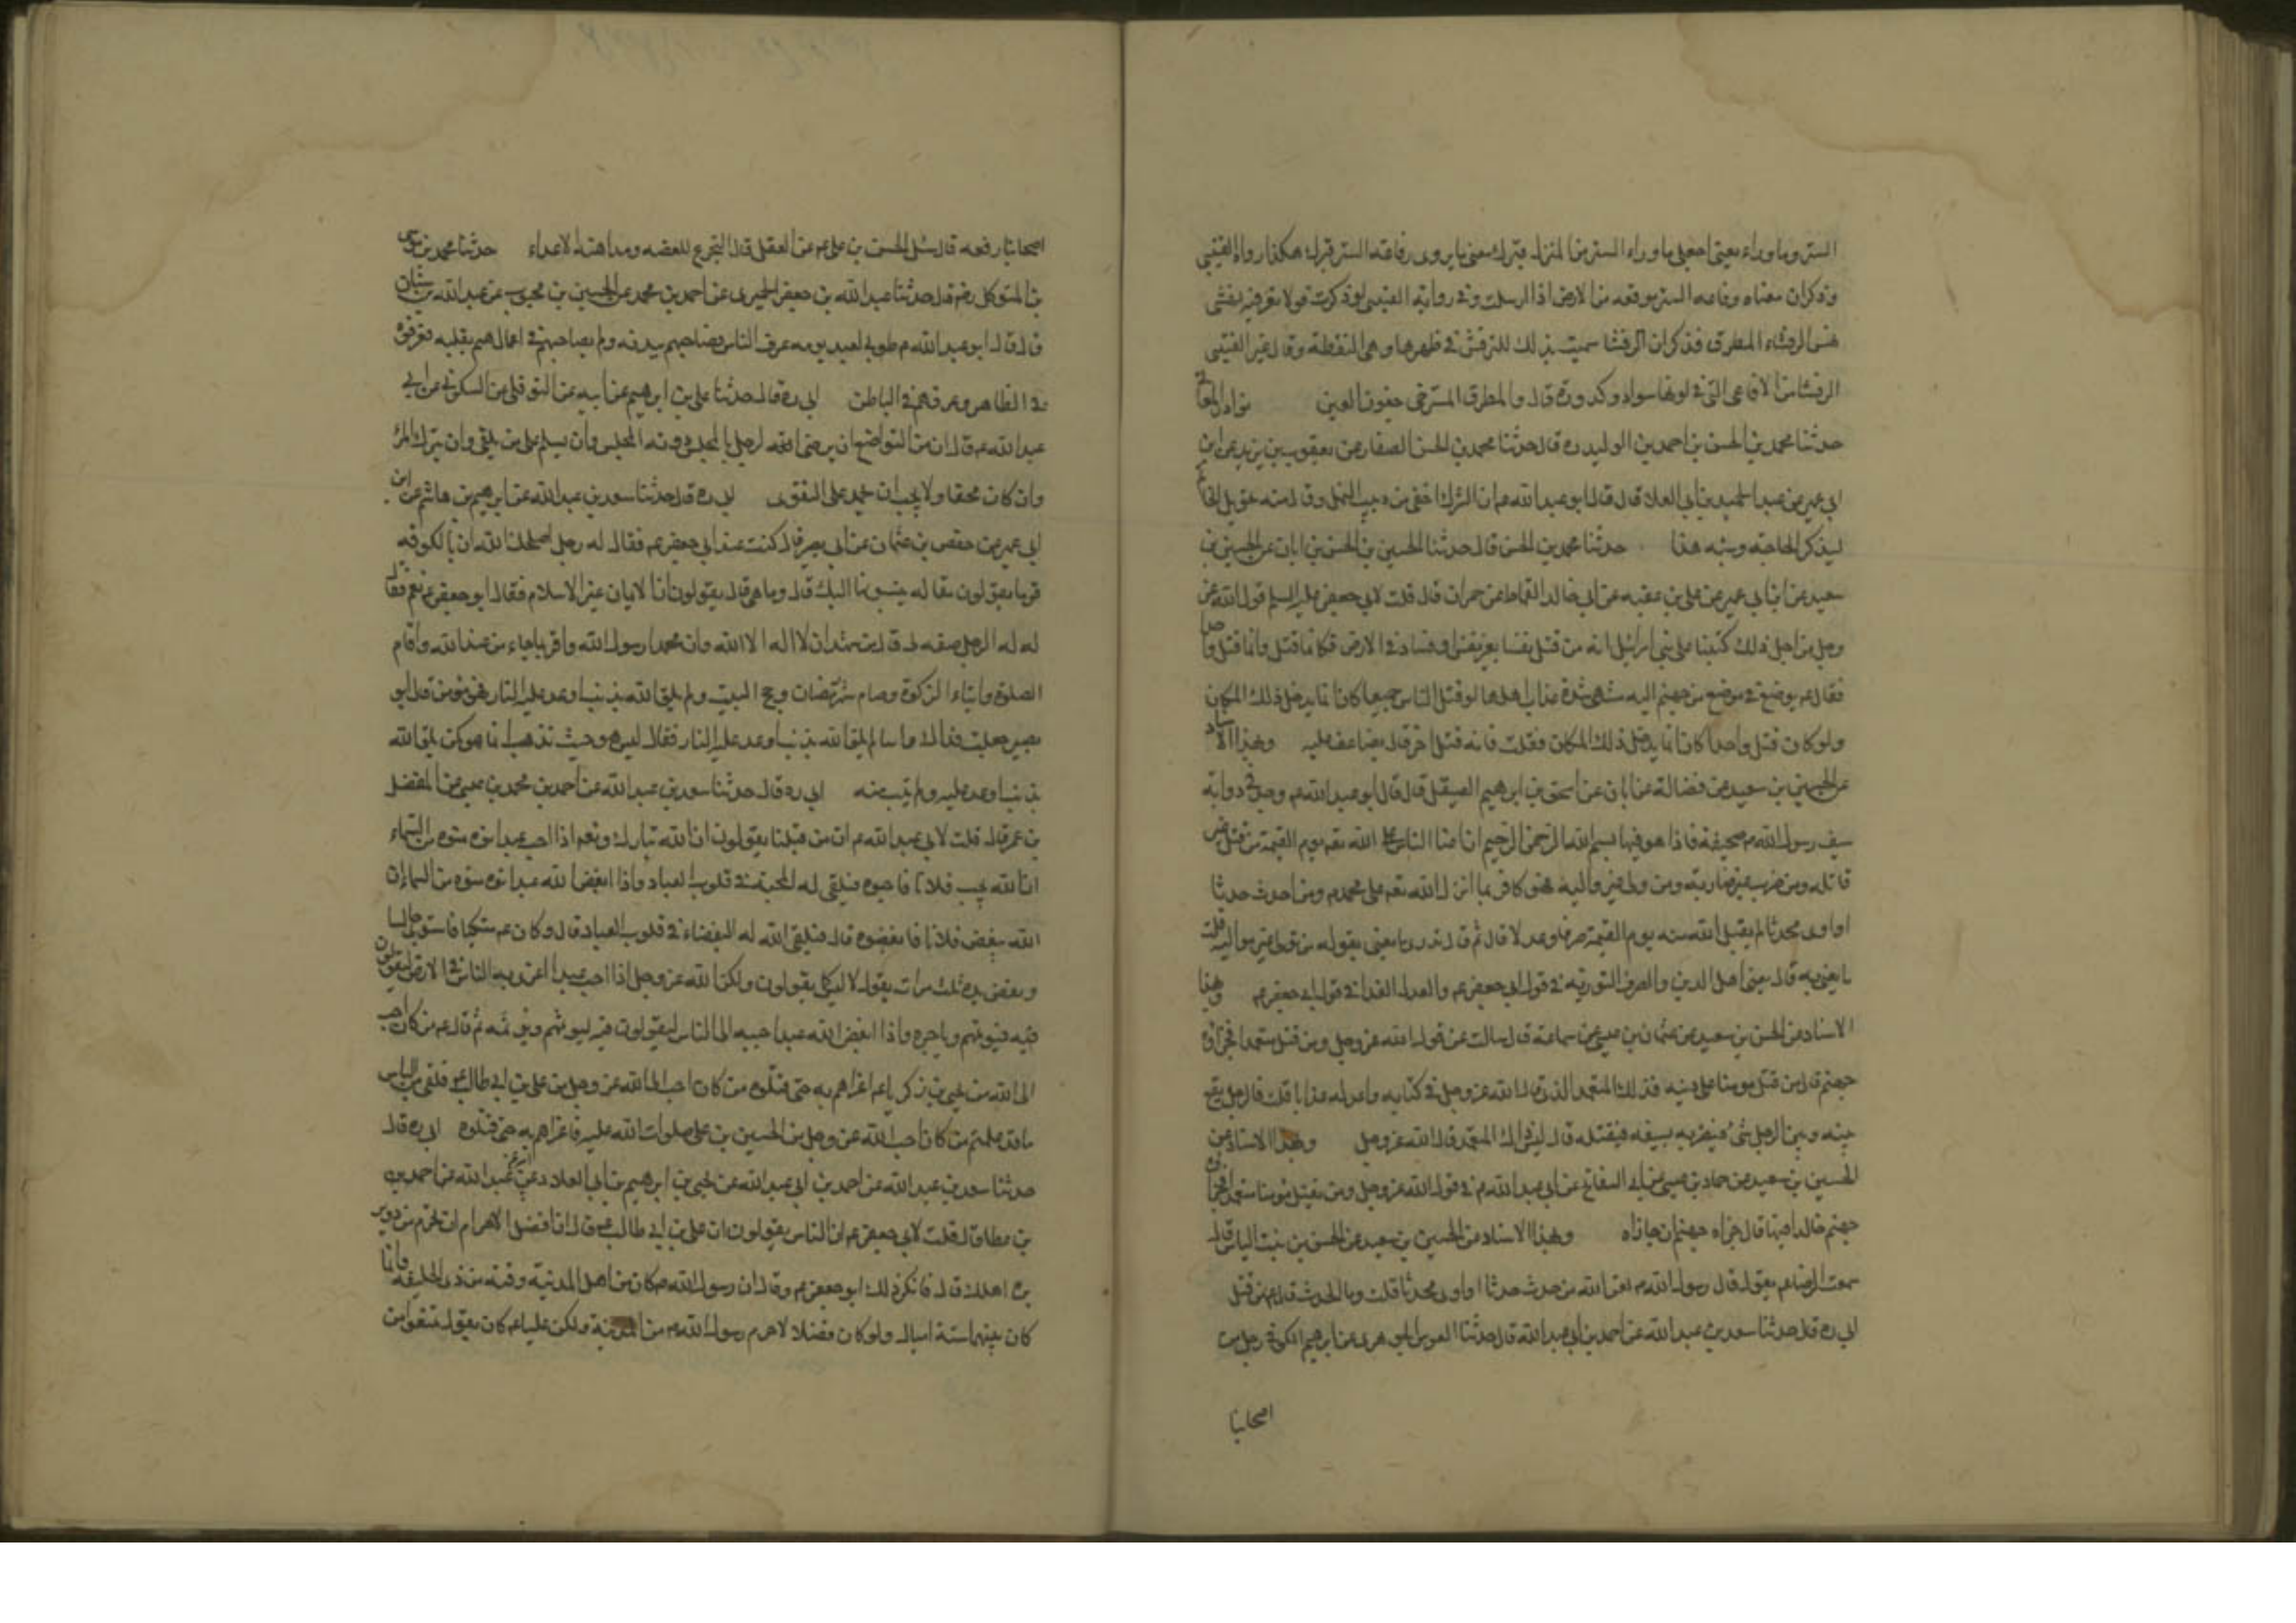 الستر وما وراءه يعني اجعلي ما وراء الستر من المنزل قبرك معنى ما يروى وقاعة الستر قبرك هكذا رواه القتيبي
وذكران معناه وقاعة الستر موقعه من الارض اذا ارسلت وفي رواية القتيبي لو ذكرت قولا تعرفينه نهشتني
نهش الرقشاء المطرق فذكر ان الرقشا سميت بذلك للترقش في ظهرها وهي النقطة وقال غير القتيبي
الرقشا من الافاعي التي في لونها سواد وكدورة قال والمطرق المسترخي جفون العين نوادر المعاني
حدثنا محمد بن الحسن بن احمد بن الوليد ره قال حدثنا محمد بن الحسن الصفار عن يعقوب بن يزيد عن ابن
ابي عمير عن عبد الحميد بن ابي العلا قال قال ابو عبد الله ع ان الشرك اخفى من دبيب النمل وقال منه تحويل الخاتم
ليذكر الحاجة وشبه هذا حدثنا محمد بن الحسن قال حدثنا الحسين بن الحسن بن ابان عن الحسين بن
سعيد عن ابن ابي عمير عن علي بن عقبه عن ابي خالد القماط عن حمران قال قلت لابي جعفر عليه السلم قول الله عز
وجل من اجل ذلك كتبنا على بني اسرائيل انه من قتل نفسا بغير نفس او فساد في الارض فكانما قتل وانما قتل واحدا
فقال ع يوضع في موضع من جهنم اليه منتهى شدة عذاب اهلها لو قتل الناس جميعا كان انما يدخل ذلك المكان
ولو كان قتل واحدا كان انما يدخل ذلك المكان فقلت فانه قتل اخر قال يضاعف عليه وبهذا الاسناد
عن الحسين بن سعيد عن فضالة عن ابان عن اسحق بن ابرهيم الصيقل قال قال ابو عبد الله ع وجد في ذوابة
سيف رسول الله ص صحيفة فاذا هو فيها بسم الله الرحمن الرحيم ان اعتا الناس على الله يوم القيمة من قتل غير
قاتله ومن ضرب غير ضاربه ومن تولى غير مواليه فهو كافر بما انزل الله تعم على محمد ص ومن احدث حدثا
او اوى محدثا لم يقبل الله منه يوم القيمة صرفا وعدلا قال ثم قال تدري ما يعني بقوله من تولى غير مواليه قلت
ما يعني به قال يعني اهل الدين والصرف التوبة في قول ابي جعفر ع والعدل الفدا في قول ابي جعفر ع وبهذا
الاسناد عن الحسن بن سعيد عن عثمان بن عيسى عن سماعة قال سالت عن قول الله عز وجل ومن قتل متعمدا فجزاؤه
جهنم قال من قتل مومنا على دينه فذلك المتعمد الذي قال الله عز وجل في كتابه واعد له عذابا قلت فالرجل يقع
بينه وبين الرجل شئ فيضربه بسيفه فيقتله قال ليس ذاك المتعمد قال الله عز وجل وبهذا الاسناد عن
الحسين بن سعيد عن حماد بن عيسى عن ابي السفاتج عن ابي عبد الله ع في قول الله عز وجل ومن يقتل مومنا متعمدا فجزاؤه
جهنم خالدا فيها قال جزاه جهنم ان جازاه وبهذا الاسناد عن الحسين بن سعيد عن الحسن بن بنت الياس قال
سمعت الرضا ع يقول قال رسول الله ص لعن الله من احدث حدثا او اوى محدثا قلت وما الحدث قال ع من قتل
ابي ره قال حدثنا سعد بن عبد الله عن احمد بن ابي عبد الله قال حدثنا العوس الجوهري عن ابرهيم الكوفي رجل من
اصحابنا
اصحابنا رفعه قال سئل الحسن بن علي ع عن العقل قال التجرع للغصة ومداهنة الاعداء حدثنا محمد بن موسى
بن المتوكل رضه قال حدثنا عبد الله بن جعفر الحميري عن احمد بن محمد عن الحسين بن محبوب عن عبد الله بن سنان
قال قال ابو عبد الله ع طوبى لعبد نومه عرف الناس فصاحبهم ببدنه ولم يصاحبهم في اعمالهم بقلبه فعرفوه
في الظاهر وعرفهم في الباطن ابي ره قال حدثنا علي بن ابرهيم عن ابيه عن النوفلي عن السكوني عن ابي
عبد الله ع قال ان من التواضع ان يرضى الرجل بالمجلس دون المجلس وان يسلم على من يلقى وان يترك المرا
وان كان محقا ولا يحب ان يحمد على التقوى ابي ره قال حدثنا سعد بن عبد الله عن ابرهيم بن هاشم عن ابن
ابي عمير عن حفص بن عثمان عن ابي بصير قال كنت عند ابي جعفر ع فقال له رجل اصلحك الله ان بالكوفة
قوما يقولون مقالة ينسبونها اليك قال وما هي قال يقولون ان الايمان غير الاسلام فقال ابو جعفر ع نعم فقال
له الرجل صفه لي قال من شهد ان لا اله الا الله وان محمدا رسول الله واقر بما جاء من عند الله واقام
الصلوة وايتاء الزكوة وصام شهر رمضان وحج البيت ولم يلق الله بذنب اوعد عليه النار فهو مومن قال ابو
بصير جعلت فداك واينا لم يلق الله بذنب اوعد عليه النار فقال ليس هو حيث تذهب انما هو من لم يلق الله
بذنب اوعد عليه ولم يتب منه ابي ره قال حدثنا سعد بن عبد الله عن احمد بن محمد بن عيسى عن المفضل
بن عمر قال قلت لابي عبد الله ع ان من قبلنا يقولون ان الله تبارك وتعم اذا احب عبدا نوه منوه من السماء
ان الله يحب فلانا فاحبوه فتلقى له المحبة في قلوب العباد واذا ابغض الله عبدا نوه منوه من السماء ان
الله يبغض فلانا فابغضوه قال فتلقى الله له البغضاء في قلوب العباد قال وكان ع متكيا فاستوى جالسا
ونفض يده ثلث مرات يقول لا ليس كما يقولون ولكن الله عز وجل اذا احب عبدا اغرى به الناس في الارض ليقولون
فيه فيوثمهم وياجره واذا ابغض الله عبدا حببه الى الناس ليقولون فيه ليوثمهم ويوثمه ثم قال ع من كان احب
الى الله من يحيى بن زكريا ع اغراهم به حتى قتلوه من كان احب الى الله عز وجل من علي بن ابي طالب ع فلقى من الناس
ما قد علمتم من كان احب الى الله عز وجل من الحسين بن علي صلوات الله عليه فاغراهم به حتى قتلوه ابي ره قال
حدثنا سعد بن عبد الله عن احمد بن ابي عبد الله عن يحيى بن ابرهيم بن ابي العلاء عن ابيه عن عبد الله عن احمد بن
بن عطا قال قلت لابي جعفر ع ان الناس يقولون ان علي بن ابي طالب ع قال ان افضل الاحرام ان تحرم من دوير
ة اهلك قال فانكر ذلك ابو جعفر ع وقال ان رسول الله ص كان من اهل المدينة وقته من ذي الحليفة وانما
كان بينهما ستة اميال ولو كان فضلا لاحرم رسول الله ص من المدينة ولكن عليا ع كان يقول تمتعوا من